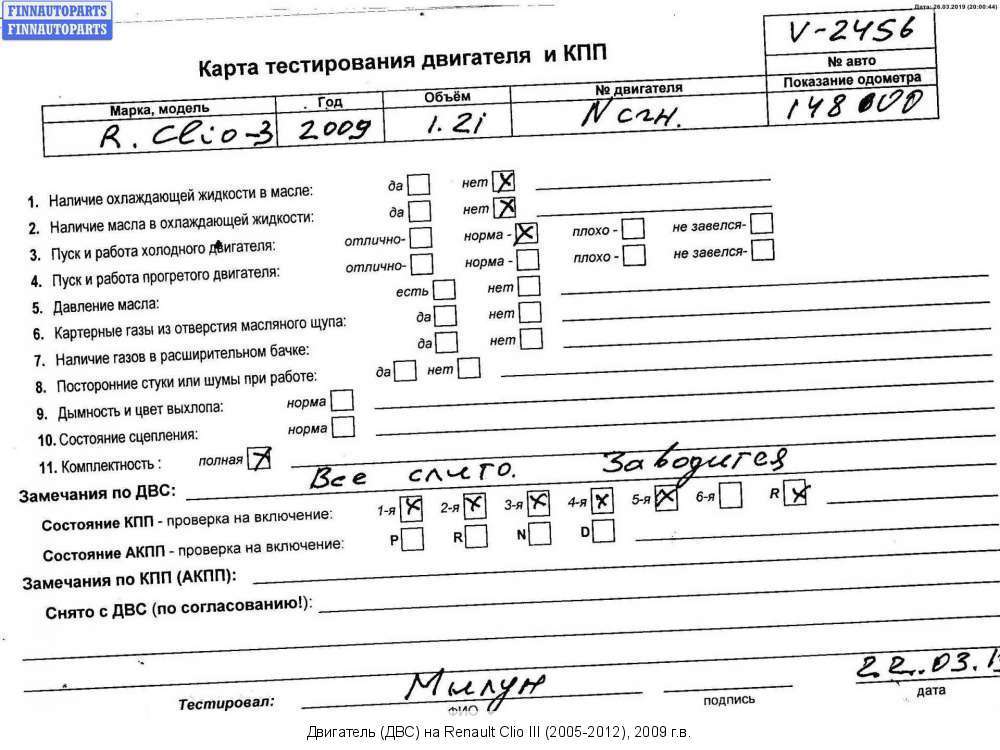 FINNAUTOPARTS
FINNAUTOPARTS
Дата: 26.03.2019 (20:00:44)
V-2456
№ авто
Карта тестирования двигателя и КПП
Показание одометра
148 000
Марка, модель Год Объём № двигателя
R. Clio-3 2009 1.2i N сгн.
1. Наличие охлаждающей жидкости в масле: да нет X
2. Наличие масла в охлаждающей жидкости: да нет X
3. Пуск и работа холодного двигателя: отлично- норма - X плохо - не завелся-
4. Пуск и работа прогретого двигателя: отлично- норма - плохо - не завелся-
5. Давление масла: есть нет
6. Картерные газы из отверстия масляного щупа: да нет
7. Наличие газов в расширительном бачке: да нет
8. Посторонние стуки или шумы при работе: да нет
9. Дымность и цвет выхлопа: норма
10. Состояние сцепления: норма
11. Комплектность : полная X
Замечания по ДВС: Все слито. Заводится
Состояние КПП - проверка на включение: 1-я X 2-я X 3-я X 4-я X 5-я X 6-я R X
Состояние АКПП - проверка на включение: P R N D
Замечания по КПП (АКПП):
Снято с ДВС (по согласованию!):
Тестировал: Милун 22.03.1
ФИО подпись дата
Двигатель (ДВС) на Renault Clio III (2005-2012), 2009 г.в.